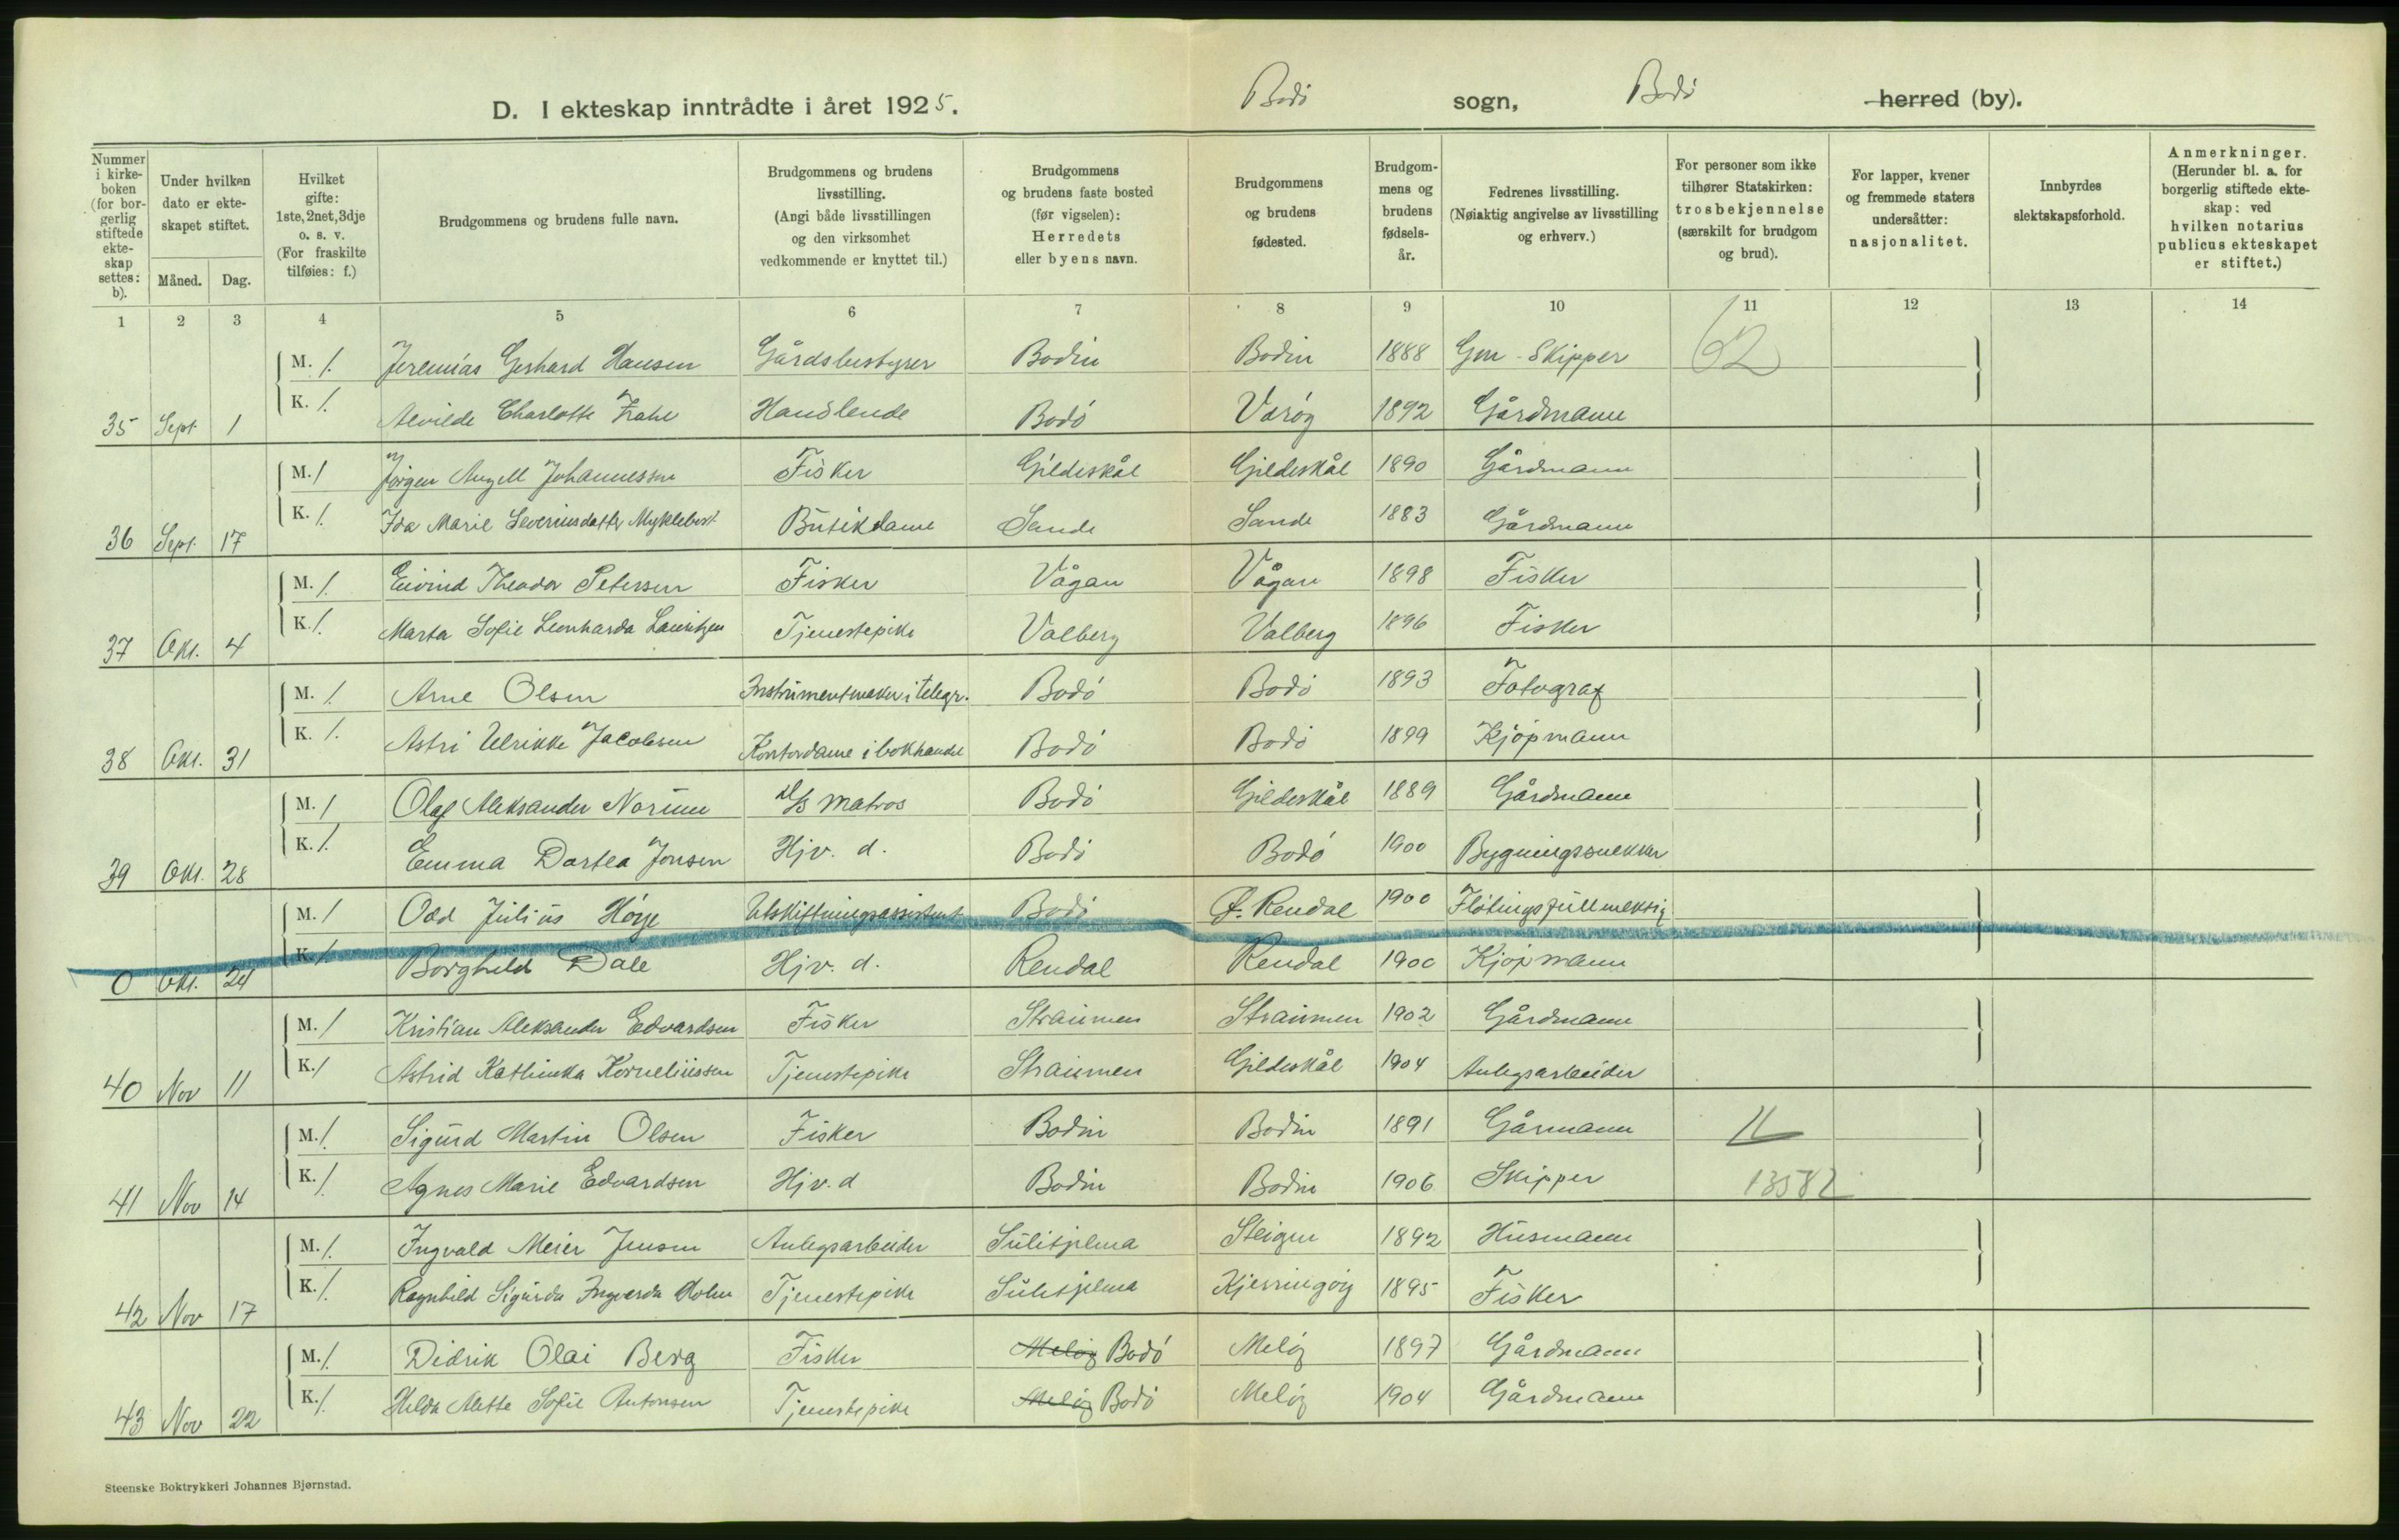 D. I ekteskap inntrådte i året 1925. Bodö sogn, Bodö herred (by).
Nummer i kirkeboken (for borgerlig stiftede ekteskap settes: b).
Under hvilken dato er ekteskapet stiftet.
Måned. Dag.
Hvilket gifte: 1ste, 2net, 3dje o. s. v. (For fraskilte tilføies: f.)
Brudgommens og brudens fulle navn.
Brudgommens og brudens livsstilling. (Angi både livsstillingen og den virksomhet vedkommende er knyttet til.)
Brudgommens og brudens faste bosted (før vigselen): Herredets eller byens navn.
Brudgommens og brudens fødested.
Brudgommens og brudens fødselsår.
Fedrenes livsstilling. (Nøiaktig angivelse av livsstilling og erhverv.)
For personer som ikke tilhører Statskirken: trosbekjennelse (særskilt for brudgom og brud).
For lapper, kvener og fremmede staters undersåtter: nasjonalitet.
Innbyrdes slektskapsforhold.
Anmerkninger. (Herunder bl. a. for borgerlig stiftede ekteskap: ved hvilken notarius publicus ekteskapet er stiftet.)
1 2 3 4 5 6 7 8 9 10 11 12 13 14
M. 1. Jeremias Gerhard Hansen Gårdsbestyrer Bodin Bodin 1888 Gm - Skipper 62
35 Sept 1 K. 1. Alvilde Charlotte Zahl Handlende Bodö Väröy 1892 Gårdmann
M. 1 Jörgen Angell Johannessen Fisker Gildeskål Gildeskål 1890 Gårdmann
36 Sept. 17 K. 1. Ida Marie Severinsdatter Myklebust Butikdame Sande Sande 1883 Gårdmann
M. 1. Eivind Theodor Petersen Fisker Vågan Vågan 1898 Fisker
37 Okt. 4 K. 1. Marta Sofie Leonharda Lauritzen Tjenestepike Valberg Valberg 1896 Fisker
M. 1. Arne Olsen Instrumentmaker i telegr. Bodö Bodö 1893 Fotograf
38 Okt. 31 K. 1. Astri Ulrikke Jacobsen Kontordame i bokhandel Bodö Bodö 1899 Kjöpmann
M. 1 Olaf Aleksander Norum D/S matros Bodö Gildeskål 1889 Gårdmann
39 Okt. 28 K. 1. Emma Dortea Jonsen Hjv. d. Bodö Bodö 1900 Bygningssnekker
M. 1 Odd Julius Höye Utskiftningsassistent Bodö Ø. Rendal 1900 Flötningsfullmektig
0 Okt. 24 K. 1. Borghild Dale Hjv. d. Rendal Rendal 1900 Kjöpmann
M. 1 Kristian Aleksander Edvardsen Fisker Straumen Straumen 1902 Gårdmann
40 Nov 11 K. 1 Astrid Kathinka Korneliussen Tjenestepike Straumen Gildeskål 1904 Anlegsarbeider
M. 1. Sigurd Martin Olsen Fisker Bodin Bodin 1891 Gårmann 11
41 Nov 14 K. 1 Agnes Marie Edvardsen Hjv. d Bodin Bodin 1906 Skipper 13582
M. 1. Ingvald Meier Jensen Anlegsarbeider Sulitjelma Steigen 1892 Husmann
42 Nov 17 K. 1. Ragnhild Sigurda Ingvarda Holm Tjenestepike Sulitjelma Kjerringöy 1895 Fisker
M. 1. Didrik Olai Berg Fisker Melöy Bodö Melöy 1897 Gårdmann
43 Nov 22 K. 1. Hilda Alette Sofie Antonsen Tjenestepike Melöy Bodö Melöy 1904 Gårdmann
Steenske Boktrykkeri Johannes Bjørnstad.